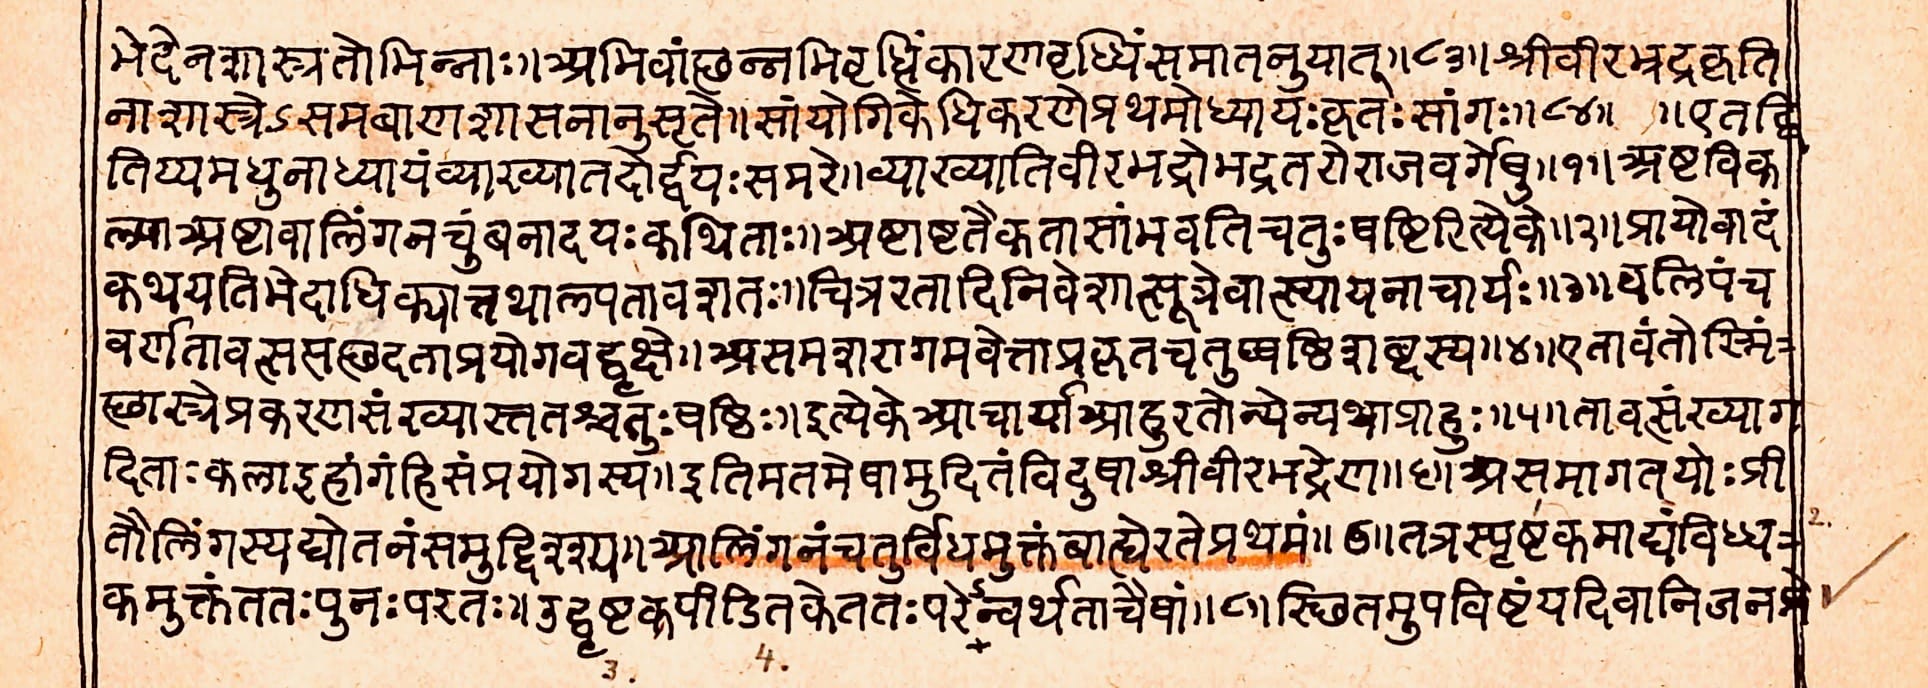 भेदेनशास्त्रतोभिन्नाः॥अभिवांछन्नभिवृध्धिंकारणवृध्धिंसमातनुयात्॥८३॥श्रीवीरभद्रकृति
नाशास्त्रेऽसमबाणशासनानुसृते॥सांयोगिकेधिकरणेप्रथमोध्यायःकृतःसांगः॥८४॥ ॥एतद्द्वि
तिय्यमधुनाध्यायंव्याख्यातदोर्द्वयःसमरे॥व्याख्यातिवीरभद्रोभद्रतरोराजवर्गेषु॥१॥अष्टविक
ल्पाअष्टावालिंगनचुंबनादयःकथिताः॥अष्टाष्टतैकतासांभवतिचतुःषष्टिरित्येके॥२॥प्रायोवादं
कथयतिभेदाधिक्यात्तथाल्पतावशतः॥चित्ररतादिनिवेशात्सूत्रेवात्स्यायनाचार्यः॥३॥बलिपंच
वर्णतावत्ससत्छदताप्रयोगवद्वृक्षे॥असमशरागमवेत्ताप्रकृतचतुष्षष्ठिशब्दस्य॥४॥एतावंतोस्मिं-
छास्त्रेप्रकरणसंख्यास्ततश्चतुःषष्ठिः॥इत्येकेआचार्याआहुरतोन्येन्यथाप्राहुः॥५॥तावत्संख्याग
दिताःकलाइहांगंहिसंप्रयोगस्य॥इतिमतमेषामुदितंविदुषाश्रीवीरभद्रेण॥६॥असमागतयोःप्री
तौलिंगस्यद्योतनंसमुद्दिश्य॥आलिंगनंचतुर्विधमुक्तंबाह्येरतेप्रथमं॥७॥तत्रस्पृष्टकमाद्यंविध्ध- 2.
कमुक्तंततःपुनःपरतः॥उद्घृष्टकपीडितकेततःपरेन्वर्थताचैषां॥८॥स्छितमुपविष्टंयदिवानिजन
3. 4.